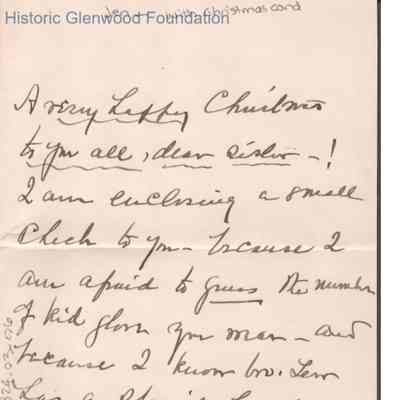 Historic Glenwood Foundation
with Christmas card
A very happy Christmas
to you all, dear sister - !
I am enclosing a small
check to you - because I
am afraid to guess the number
of kid gloves you wear - and
because I know bro. Lew
has a